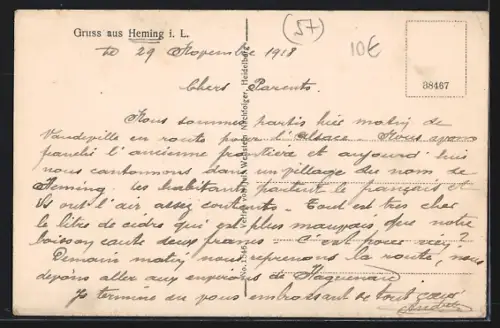 Gruss aus Heming i. L.
(57)
10€
38467
le 29 Novembre 1918
Chers Parents.
Nous sommes partis hier matin de
Vaudeville en route pour l'Alsace. Nous avons
franchi l'ancienne frontière et aujourd'hui
nous cantonnons dans un village du nom de
Heming. Les habitants parlent le français et
ils ont l'air assez contents. Tout est très cher
le litre de cidre qui est plus mauvais que notre
boisson coute deux francs. C'est pour rien?
Demain matin nous reprenons la route, nous
devons aller aux environs de Haguenau.
Je termine en vous embrassant de tout cœur
No. 11546 Verlag von Wehrstein Nachfolger, Heidelberg